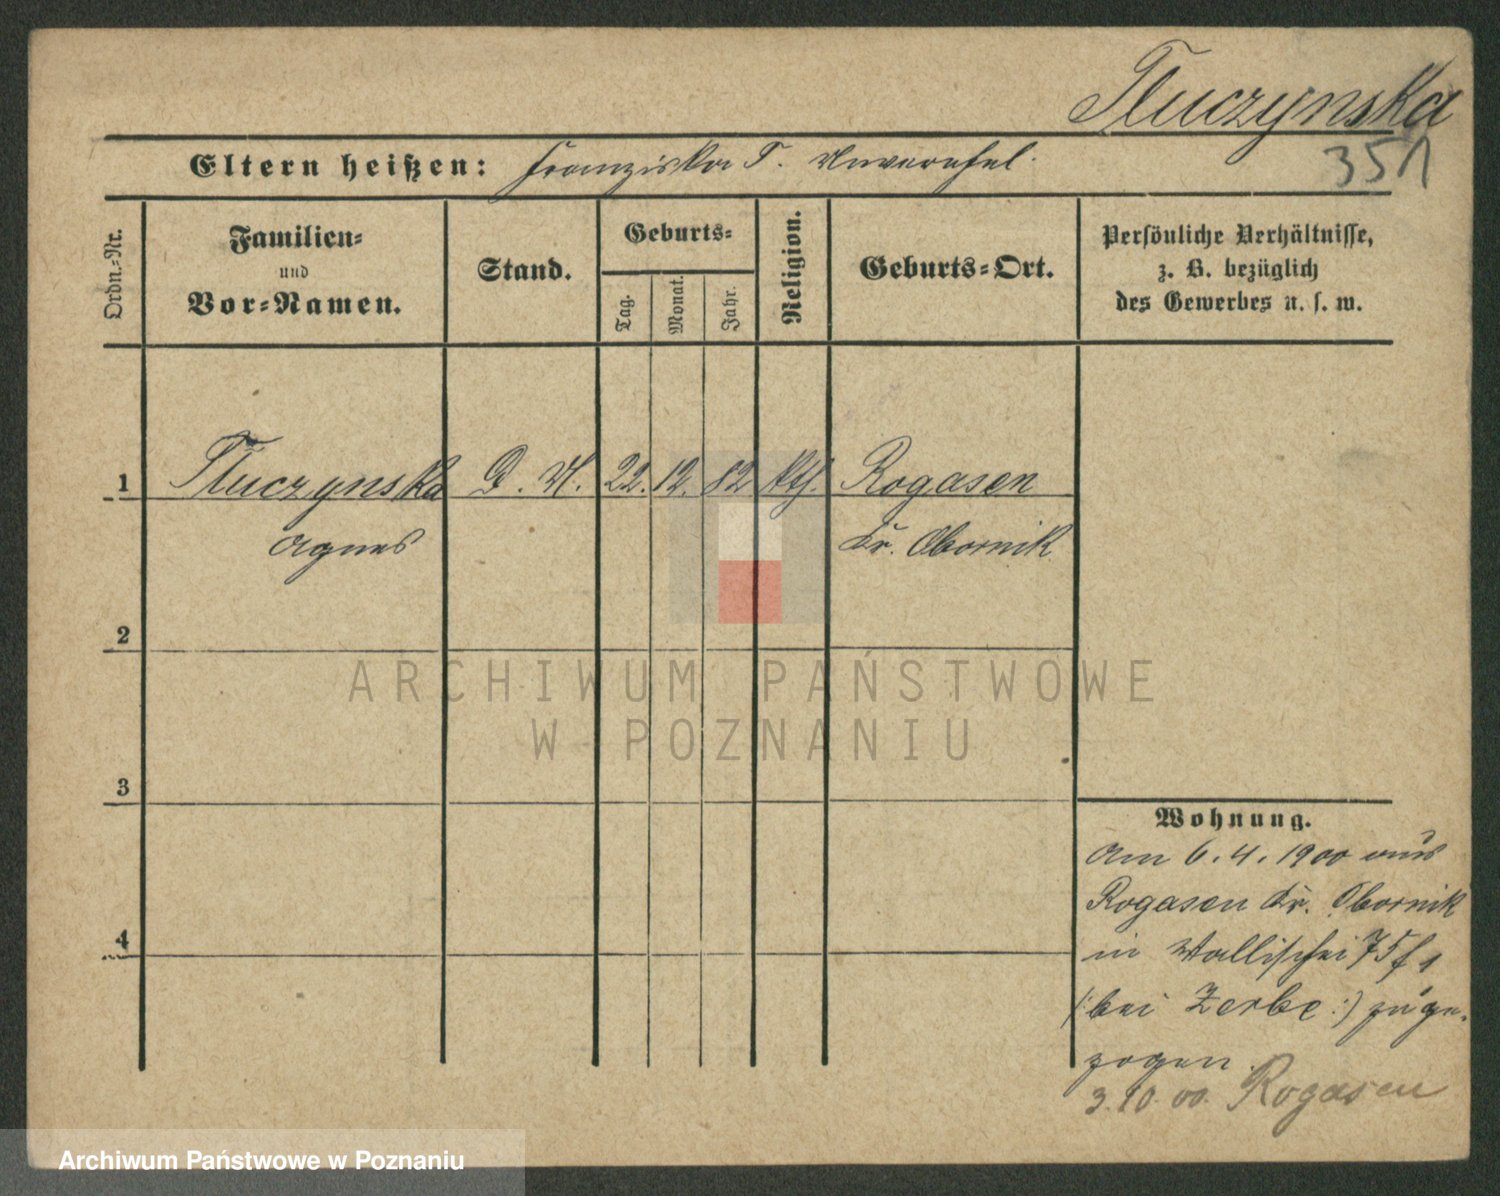 Tluczynska
351
Eltern heißen: Franziska T. Unverehel.
Ordn.-Nr.
Familien-
und
Vor-Namen.
Stand.
Geburts-
Tag.
Monat.
Jahr.
Religion.
Geburts-Ort.
Persönliche Verhältnisse,
z. B. bezüglich
des Gewerbes u. s. w.
1 Tluczynska D. M. 22. 12. 82 kth. Rogasen
Agnes Kr. Obornik
2
3
4
Wohnung.
Am 6. 4. 1900 aus
Rogasen Kr. Obornik
in Wallischei 75 f 1
(: bei Zerbe :) zuge-
zogen.
3. 10. 00. Rogasen
ARCHIWUM PAŃSTWOWE
W POZNANIU
Archiwum Państwowe w Poznaniu